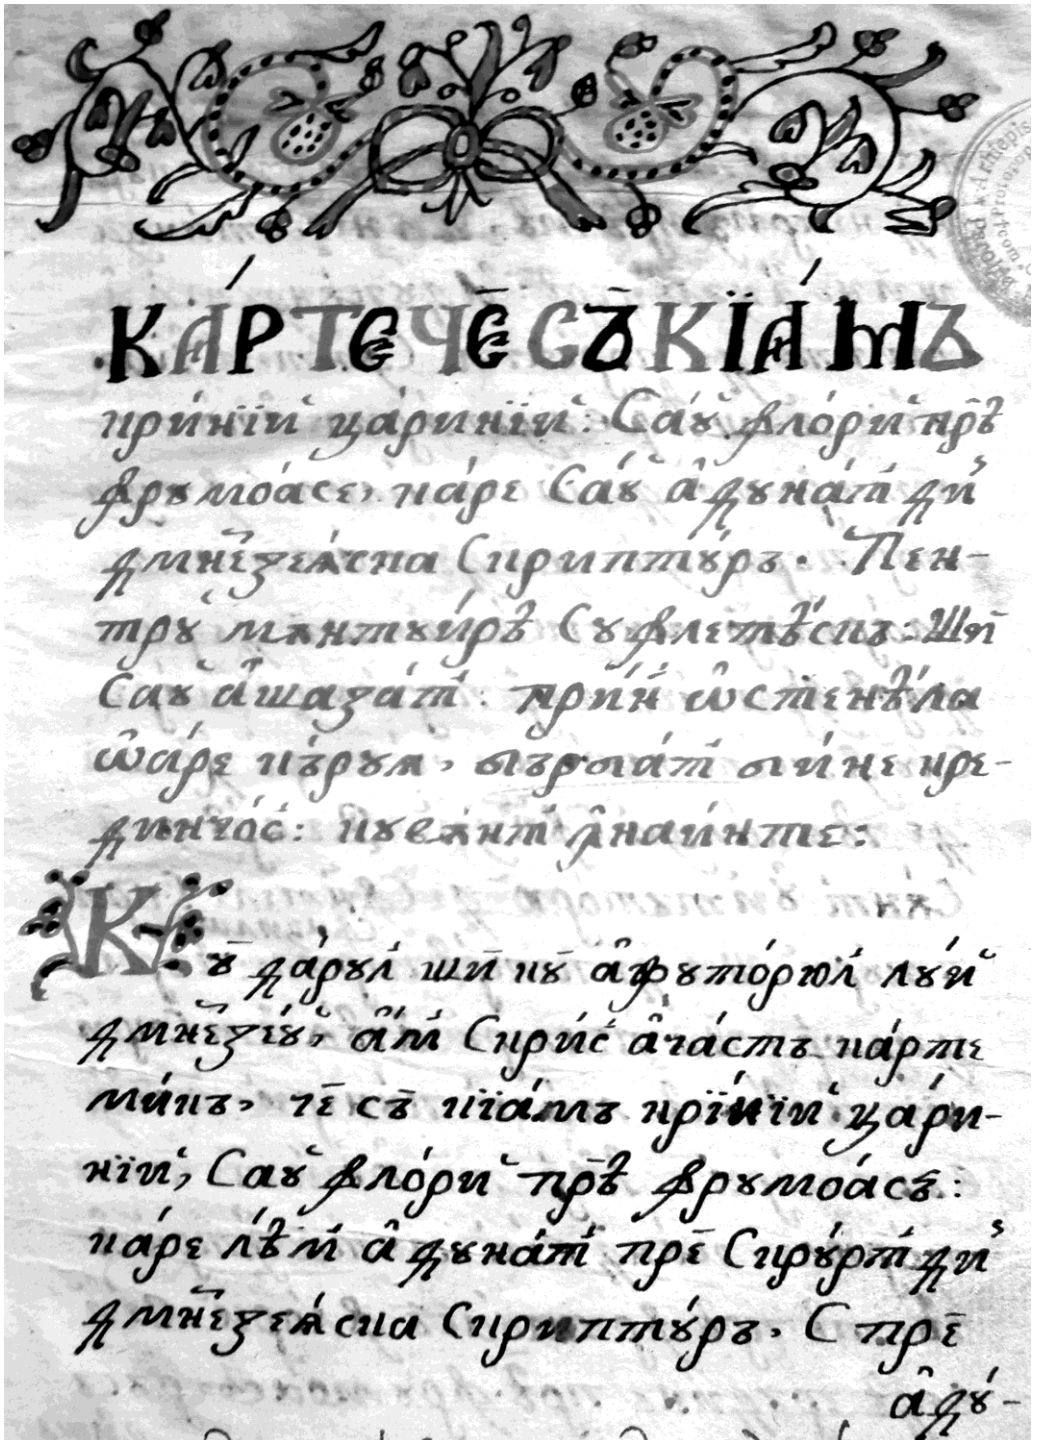 КА́РТЕ ЧЕ̄ СЪ̄ КЇА́МЪ
кри́нїй ца́ринїй: Са́ꙋ фло́рй пр̄ѣ
фрꙋмоа́се, ка́ре Са́ꙋ а҆дꙋна́т ди҆
дмн҃еꙁеѧ́ска Скриптꙋ́ръ. Пен-
трꙋ̀ мѫнтꙋи́рѣ Сꙋфлетѣ́скъ: Шӣ
Саꙋ а҆шаꙁа́т: при́н ѡ҆стенѣ́ла
ѡ҆а́ре кърꙋѧ, бърба́т би́не кре-
динчо́с: кꙋвѫ́нт ꙟ҆наи́нте:
Кꙋ̄ да́рꙋл шӣ кꙋ̄ а҆жꙋто́рюл лꙋ́й
дмн҃еꙁе́ꙋ, а҆́м Скри́с а҆ча́стъ ка́рте
ми́къ, че̄ съ̄ кїа́мъ крї́нїй ца́ри-
нїй, Саꙋ̀ фло́рй пр̄ѣ фрꙋмоа́съ̄:
ка́ре лѣ́м а҆дꙋна́т прē Скꙋ́рт ди҆
дмн҃еꙁеѧ́ска Скриптꙋ́ръ. С прē
а҆дꙋ́-